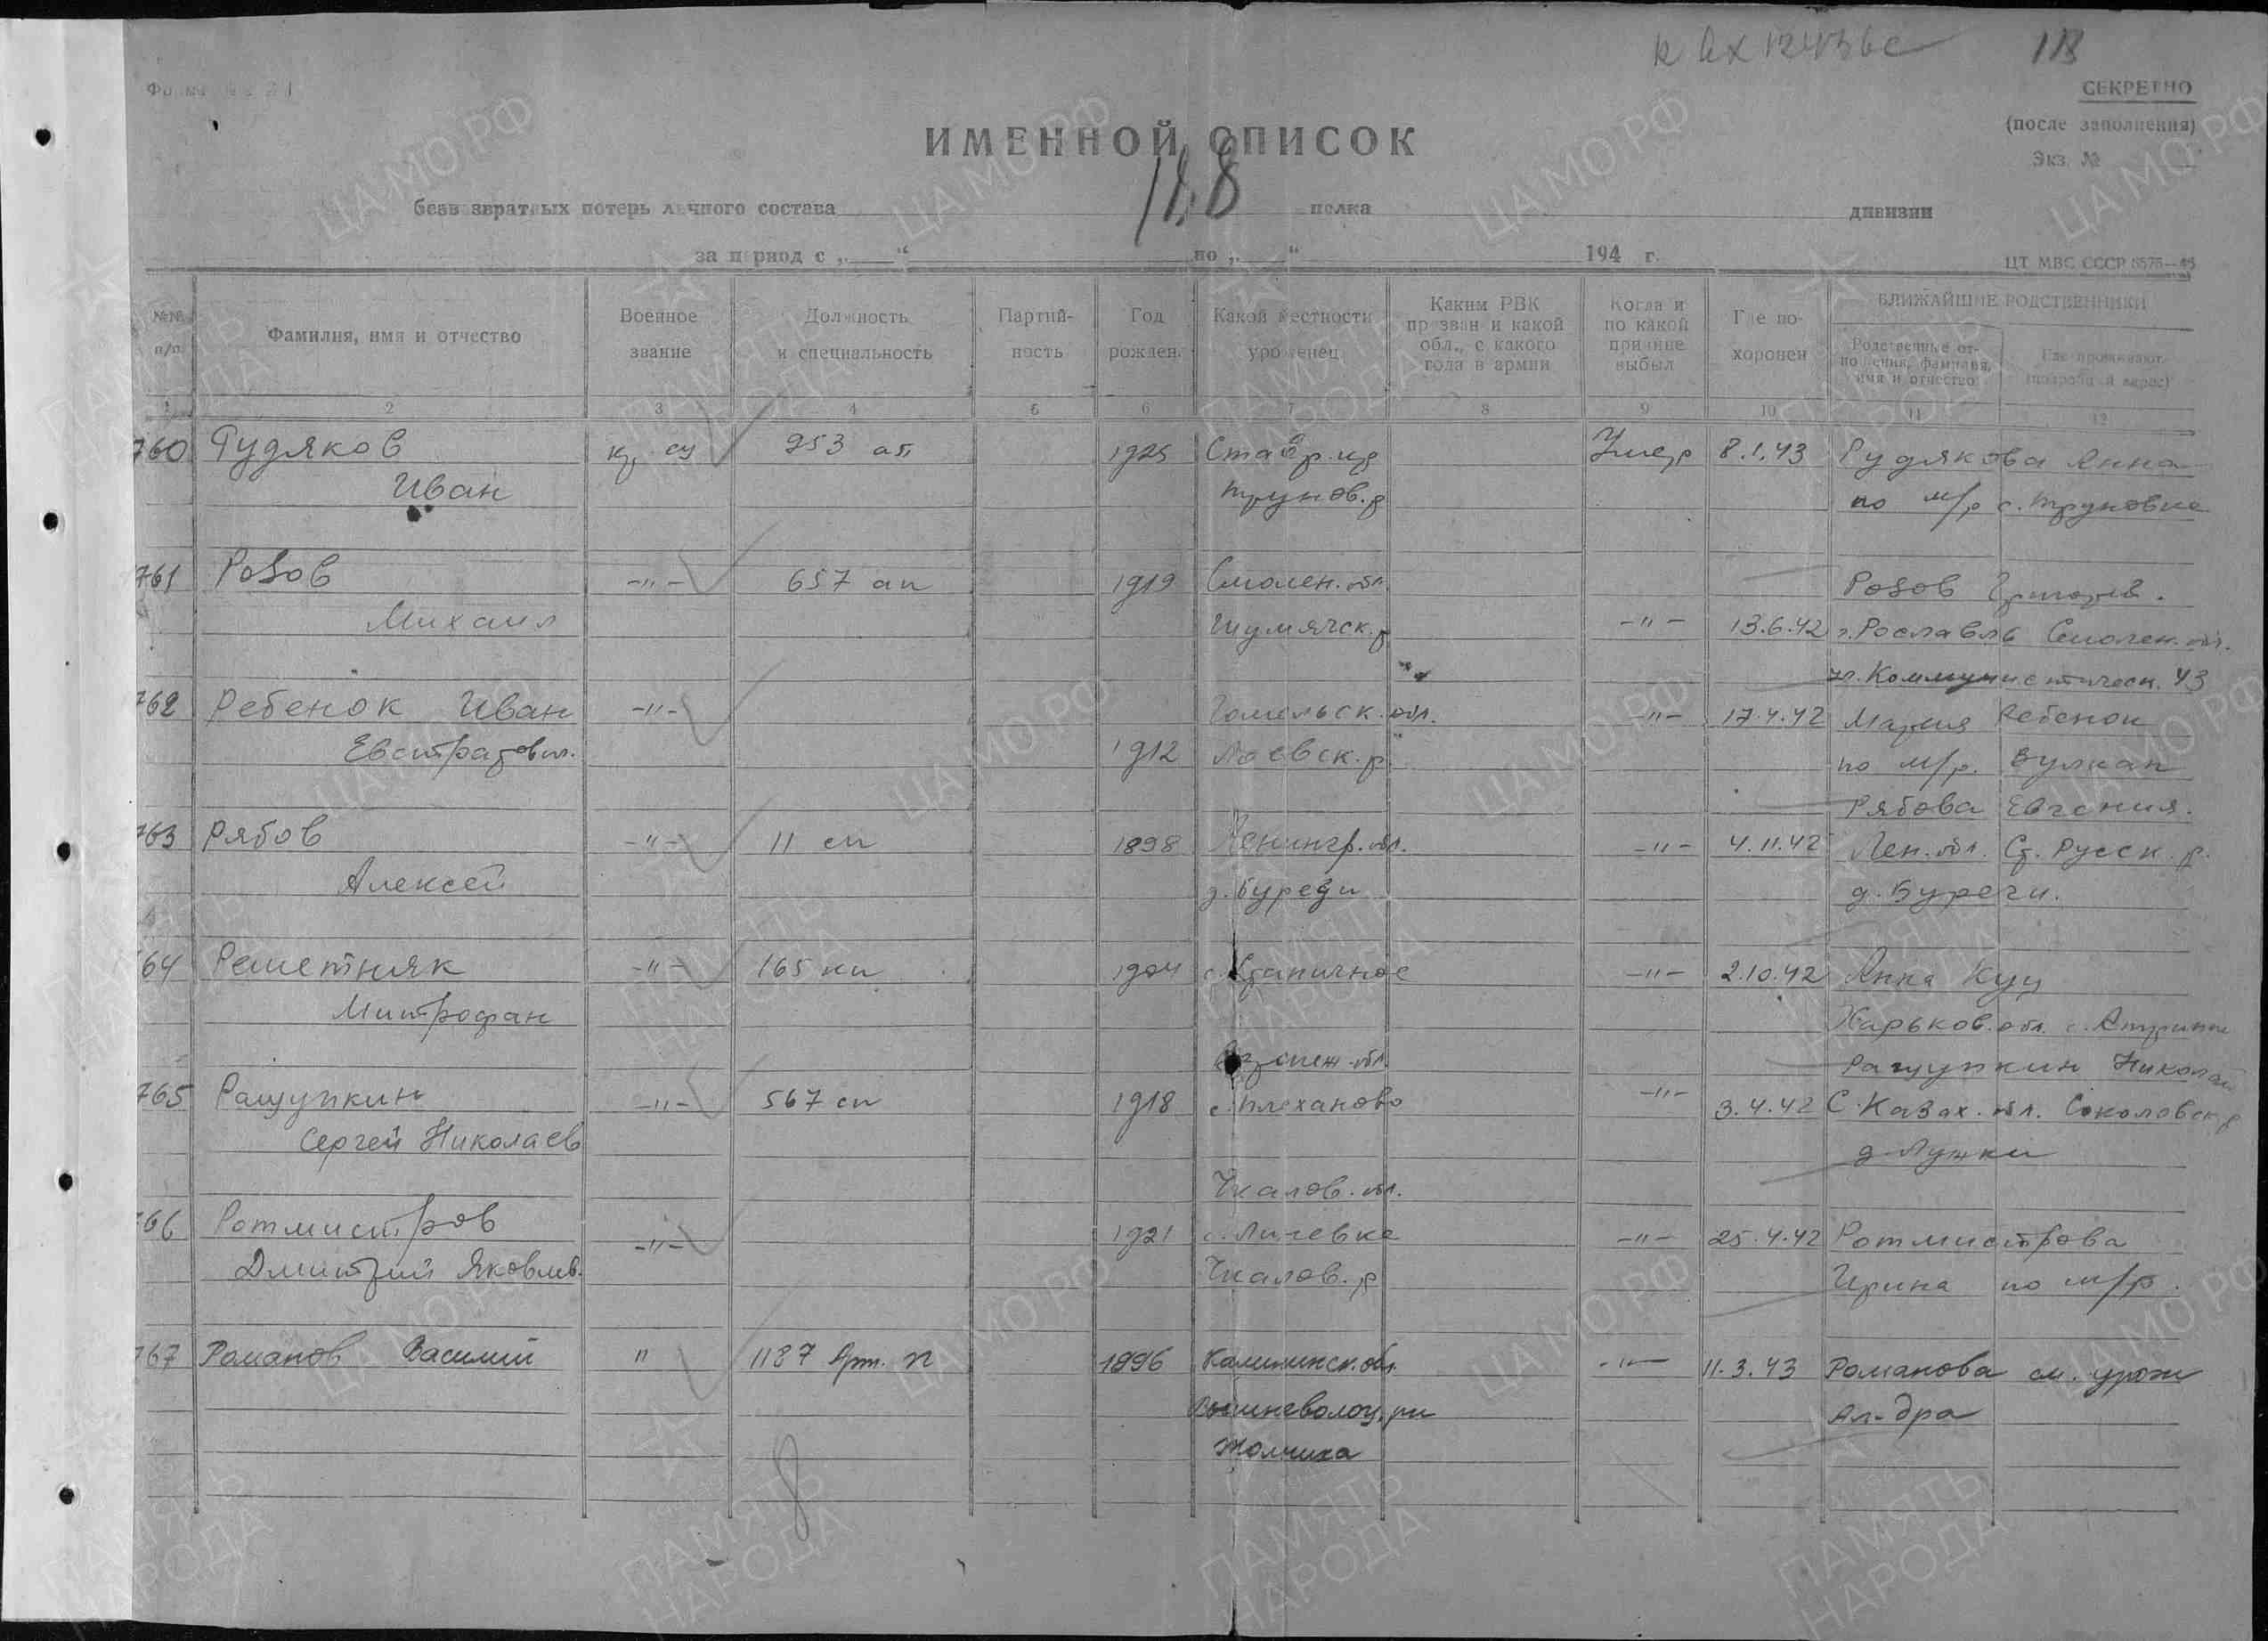 к вх 12436с 118
Форма № 2
СЕКРЕТНО
(после заполнения)
Экз. №
ИМЕННОЙ СПИСОК
118
безвозвратных потерь личного состава полка дивизии
за период с „ “ по „ “ 194 г.
ЦТ МВС СССР 8575—46
№№ п/п
Фамилия, имя и отчество
Военное звание
Должность и специальность
Партийность
Год рожден.
Какой местности уроженец
Каким РВК призван и какой обл., с какого года в армии
Когда и по какой причине выбыл
Где похоронен
БЛИЖАЙШИЕ РОДСТВЕННИКИ
Родственные отношения, фамилия, имя и отчество
Где проживают (подробный адрес)
1 2 3 4 5 6 7 8 9 10 11 12
760 Рудяков 253 ап 1925 Ставр. Умер 8.1.43 Рудякова Анна
Иван Трунов.р по м/р с. Труновка
761 Розов -"- 657 ап 1919 Смолен. обл. Розов Григорий.
Михаил Шумячск.р -"- 13.6.42 г.Рославль Смолен. обл.
ул. Коммунистическ. 43
762 Ребенок Иван -"- Гомельск. обл. -"- 17.4.42 Мария Ребенок
Евстратович. 1912 Лоевск.р по м/р. Вулкан
Рябова Евгения.
763 Рябов -"- 11 сп 1898 Ленингр. обл. -"- 4.11.42 Лен. обл. Ст. Русск. р.
Алексей д. Буреги д. Буреги.
764 Решетняк -"- 165 кп 1904 с. Станичное -"- 2.10.42 Анна Куц
Митрофан Харьков. обл.
Воронеж. обл. Ращупкин Николай
765 Ращупкин -"- 567 сп 1918 с. Плеханово -"- 3.4.42 С. Казах. обл. Соколовск р
Сергей Николаев д. Лужки
Чкалов. обл.
766 Ротмистров -"- 1921 -"- 25.4.42 Ротмистрова
Дмитрий Яковлев. Чкалов. р Ирина по м/р.
767 Романов Василий " 1187 Арт. п 1896 Калининск. обл. -"- 11.3.43 Романова см. урож
Вышневолоц. рн Ал-дра